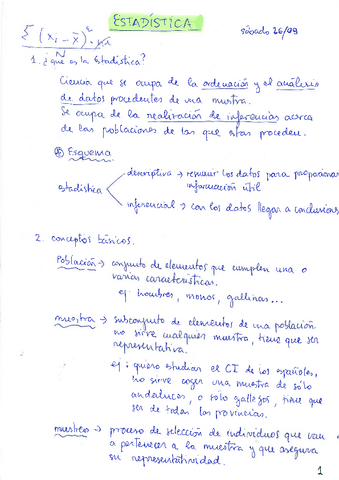 ESTADÍSTICA
sábado 26/09
Σ (xi - x̄)² · ni
N
1. ¿qué es la Estadística?
Ciencia que se ocupa de la ordenación y el análisis
de datos procedentes de una muestra.
Se ocupa de la realización de inferencias acerca
de las poblaciones de las que estas proceden.
Esquema
estadística
descriptiva → resumir los datos para proporcionar
información útil
inferencial → con los datos llegar a conclusiones
2. conceptos básicos.
Población → conjunto de elementos que cumplen una o
varias características.
ej: hombres, monos, gallinas...
muestra → subconjunto de elementos de una población
no sirve cualquier muestra, tiene que ser
representativa.
ej: quiero estudiar el CI de los españoles,
no sirve coger una muestra de sólo
andaluces, o solo gallegos, tiene que
ser de todas las provincias.
muestreo → proceso de selección de individuos que van
a pertenecer a la muestra y que asegura
su representatividad.
1